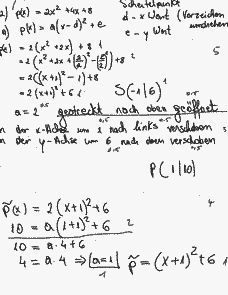 2) p(x) = 2x² + 4x + 8
Scheitelpunkt
a) p(x) = a(x-d)² + e
d - x Wert (Vorzeichen
umdrehen
e - y Wert
p(x) = 2(x²+2x) + 8 1
= 2(x²+2x+(2/2)²-(2/2)²)+8 2
5
= 2((x+1)²-1)+8
= 2(x+1)²+6 1
S(-1|6) 1
a = 2 0.5 gestreckt nach oben geöffnet
0.5 0.5
n der x-Achse um 1 nach links verschoben
n der y-Achse um 6 nach oben verschoben
0.5 0.5
P(1|10)
p̃(x) = 2(x+1)²+6
4
10 = a(1+1)²+6 2
10 = a·4+6
4 = a·4 ⇒ a=1 p̃ = (x+1)²+6 1
1